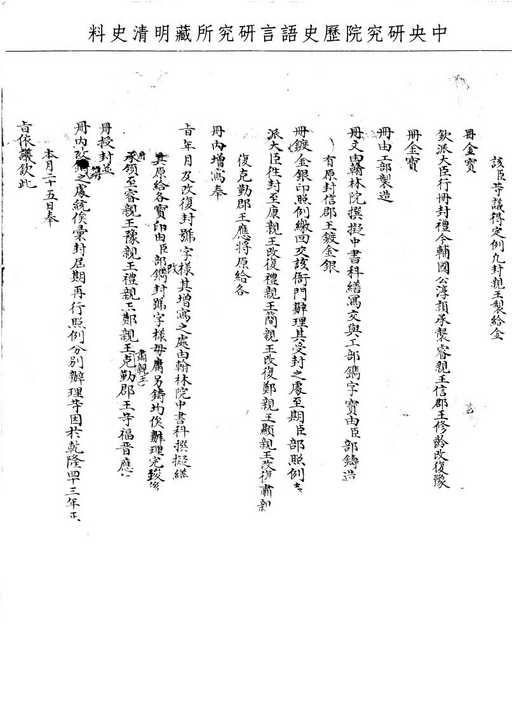 中央研究院歷史語言研究所藏明清史料
該臣等議得定例凡封親王製給金
冊金寶
欽派大臣行冊封禮今輔國公淳頴承襲睿親王信郡王修齡改復豫
冊金寶
冊由工部製造
冊文由翰林院撰擬中書科繕寫交與工部鐫字寶由臣部鑄造
有原封信郡王鍍金銀
冊鍍金銀印照例繳回交該衙門辦理其受封之處至期臣部照例
派大臣往封至康親王改復禮親王簡親王改復鄭親王顯親王改復肅親
復克勤郡王應將原給各
冊內增寫奉
旨年月及改復封號字樣其增寫之處由翰林院中書科撰擬繕
其原給各寶印由臣部鐫封號字樣毋庸另鑄均俟辦理完竣
承領至睿親王豫親王禮親王鄭親王肅親王克勤郡王等福晉應
冊授封並
冊內改之處統俟彙封屆期再行照例分別辦理等因於乾隆四十三年正
本月二十五日奉
旨依議欽此